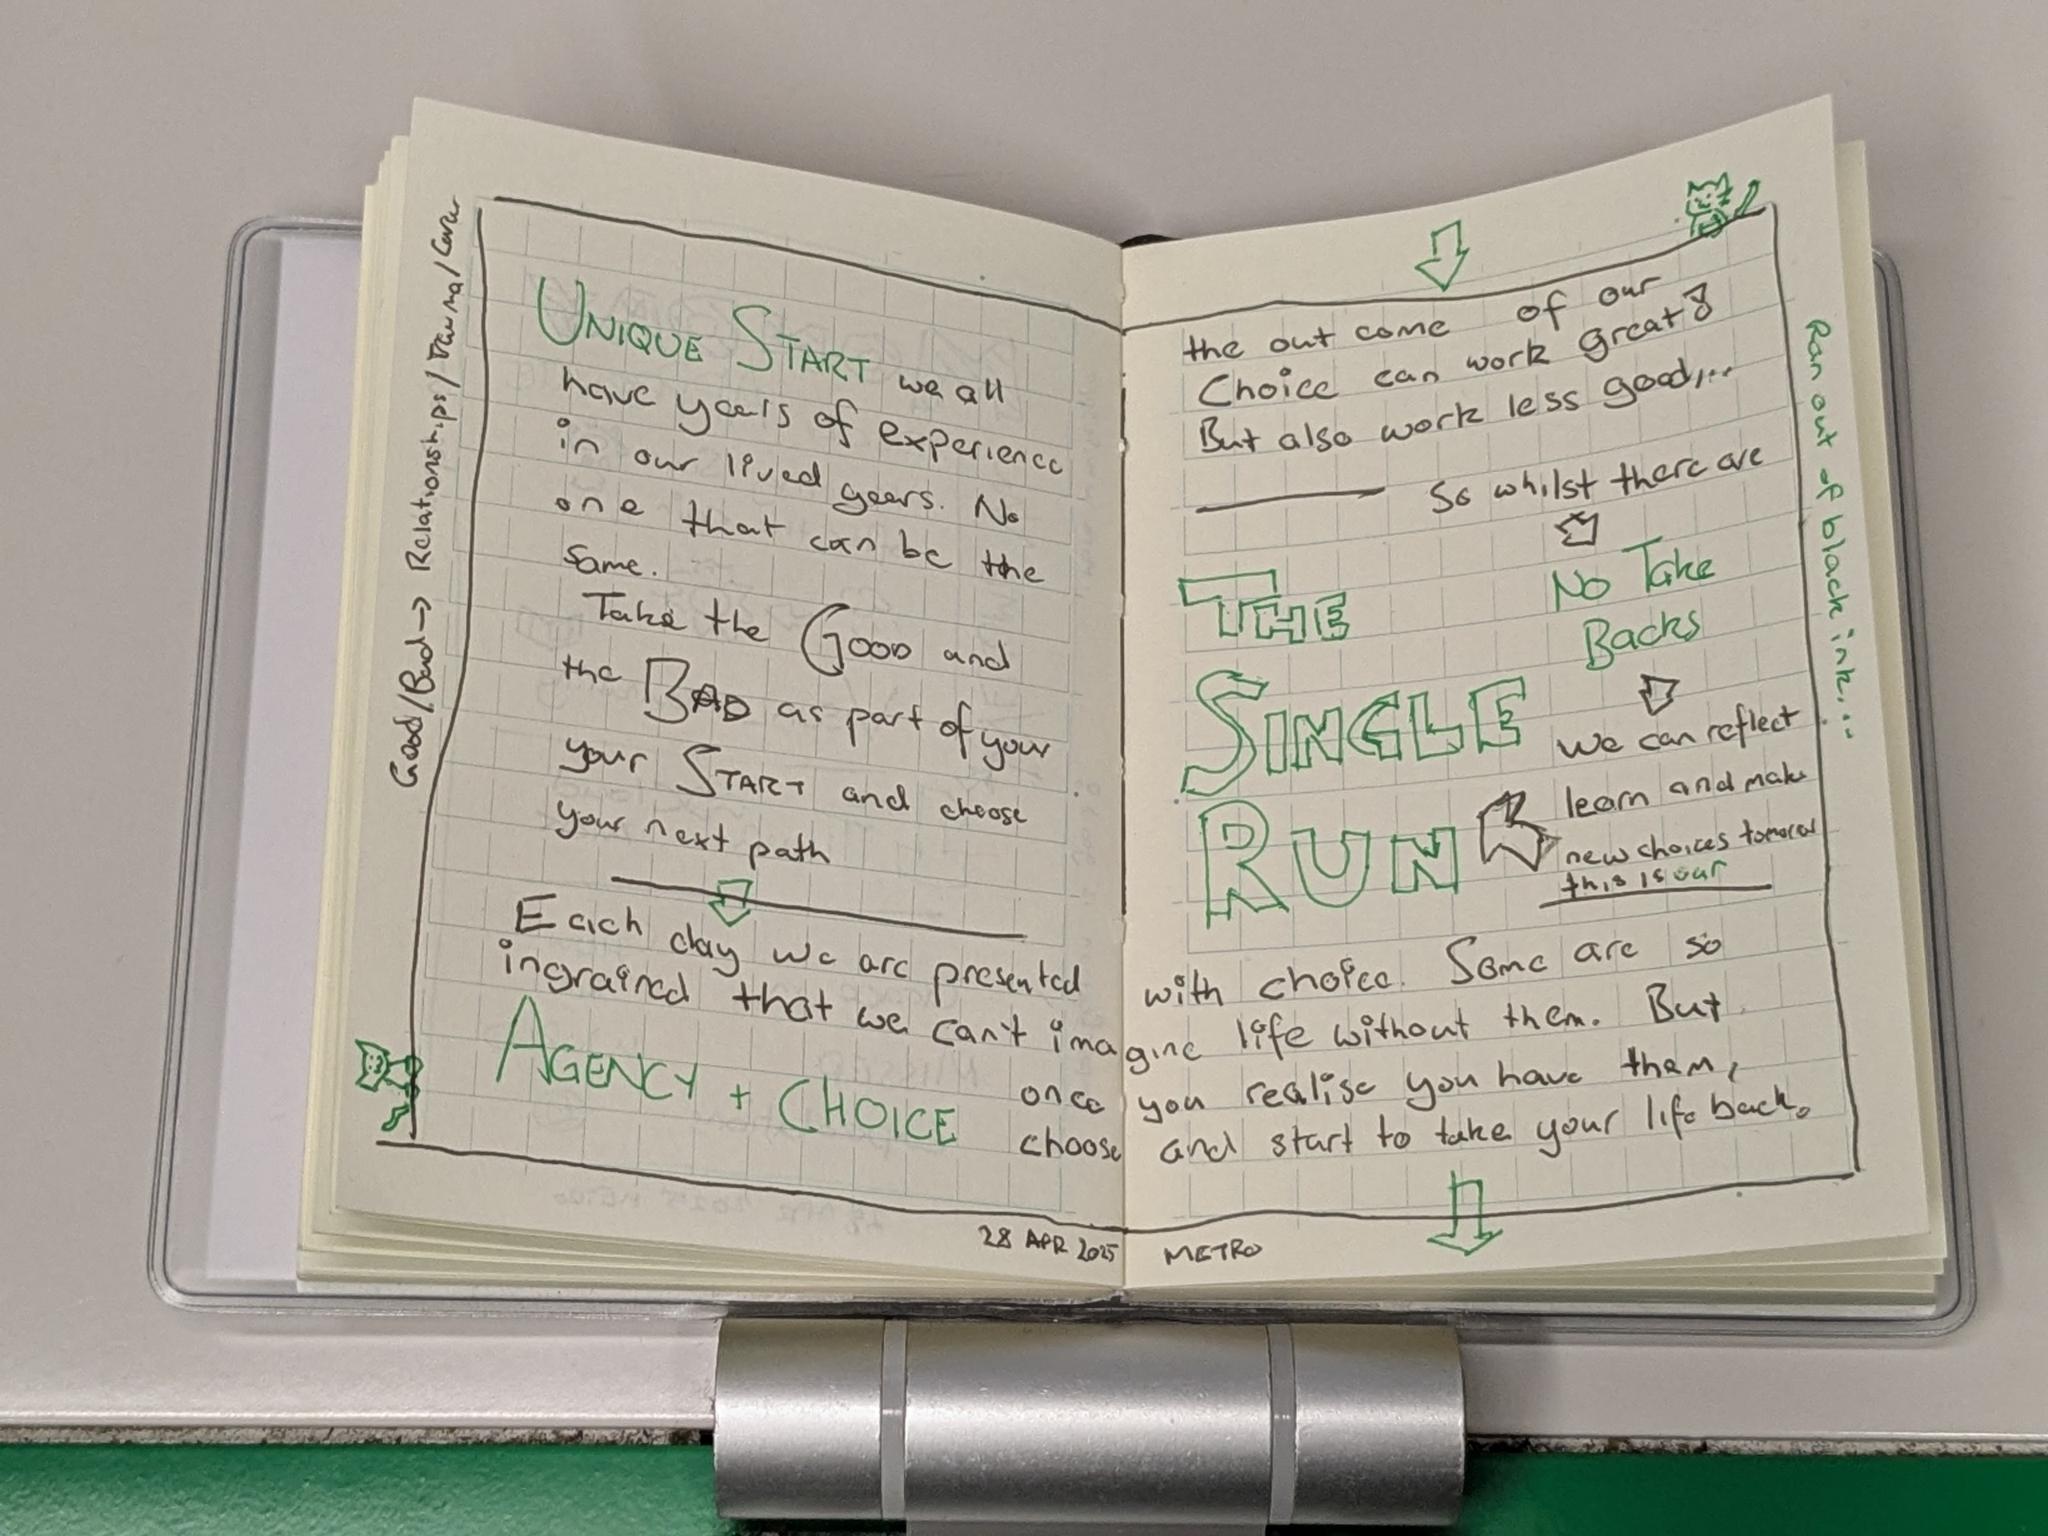 Good/Bad → Relationships/Trauma/
UNIQUE START we all
have years of experience
in our lived years. No
one that can be the
same.
Take the GOOD and
the BAD as part of your
your START and choose
your next path
Each day we are presented with choice. Some are so
ingrained that we can't imagine life without them. But
AGENCY + CHOICE
once you realise you have them,
choose and start to take your life back.
28 APR 2025 METRO
the out come of our
Choice can work great
But also work less good,...
So whilst there are
NO TAKE
BACKS
we can reflect
learn and make
new choices tomorrow
this is our
THE
SINGLE
RUN
Ran out of black ink...